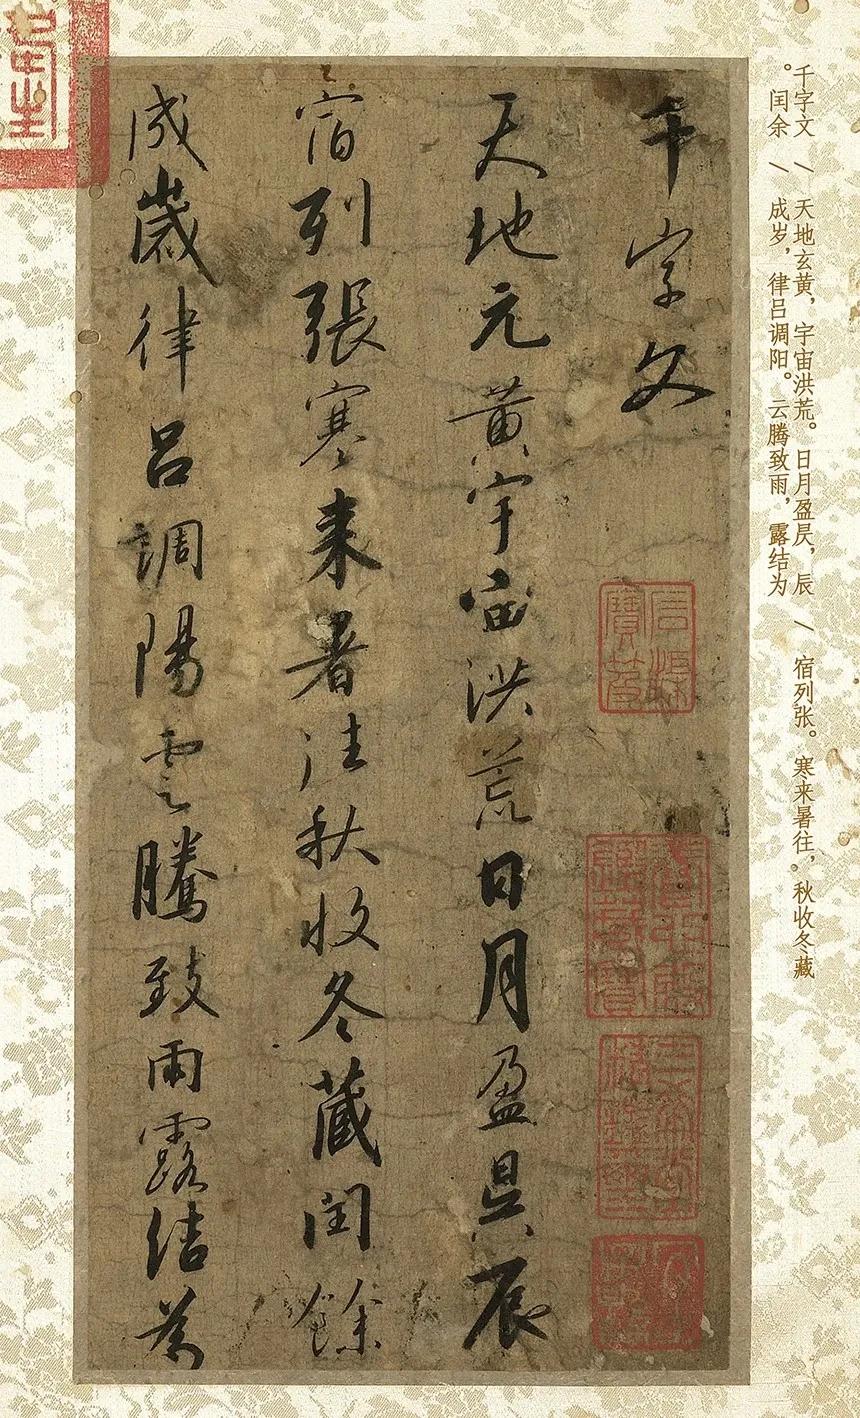 千字文 / 天地玄黄，宇宙洪荒。日月盈昃，辰 / 宿列张。寒来暑往，秋收冬藏
。闰余 / 成岁，律吕调阳。云腾致雨，露结为
千字文
石渠寶笈
三希堂精鑑璽
宜子孫
天地元黄宇宙洪荒日月盈昃辰
宿列張寒来暑往秋收冬蔵閏餘
成歲律吕調陽雲騰致雨露結為